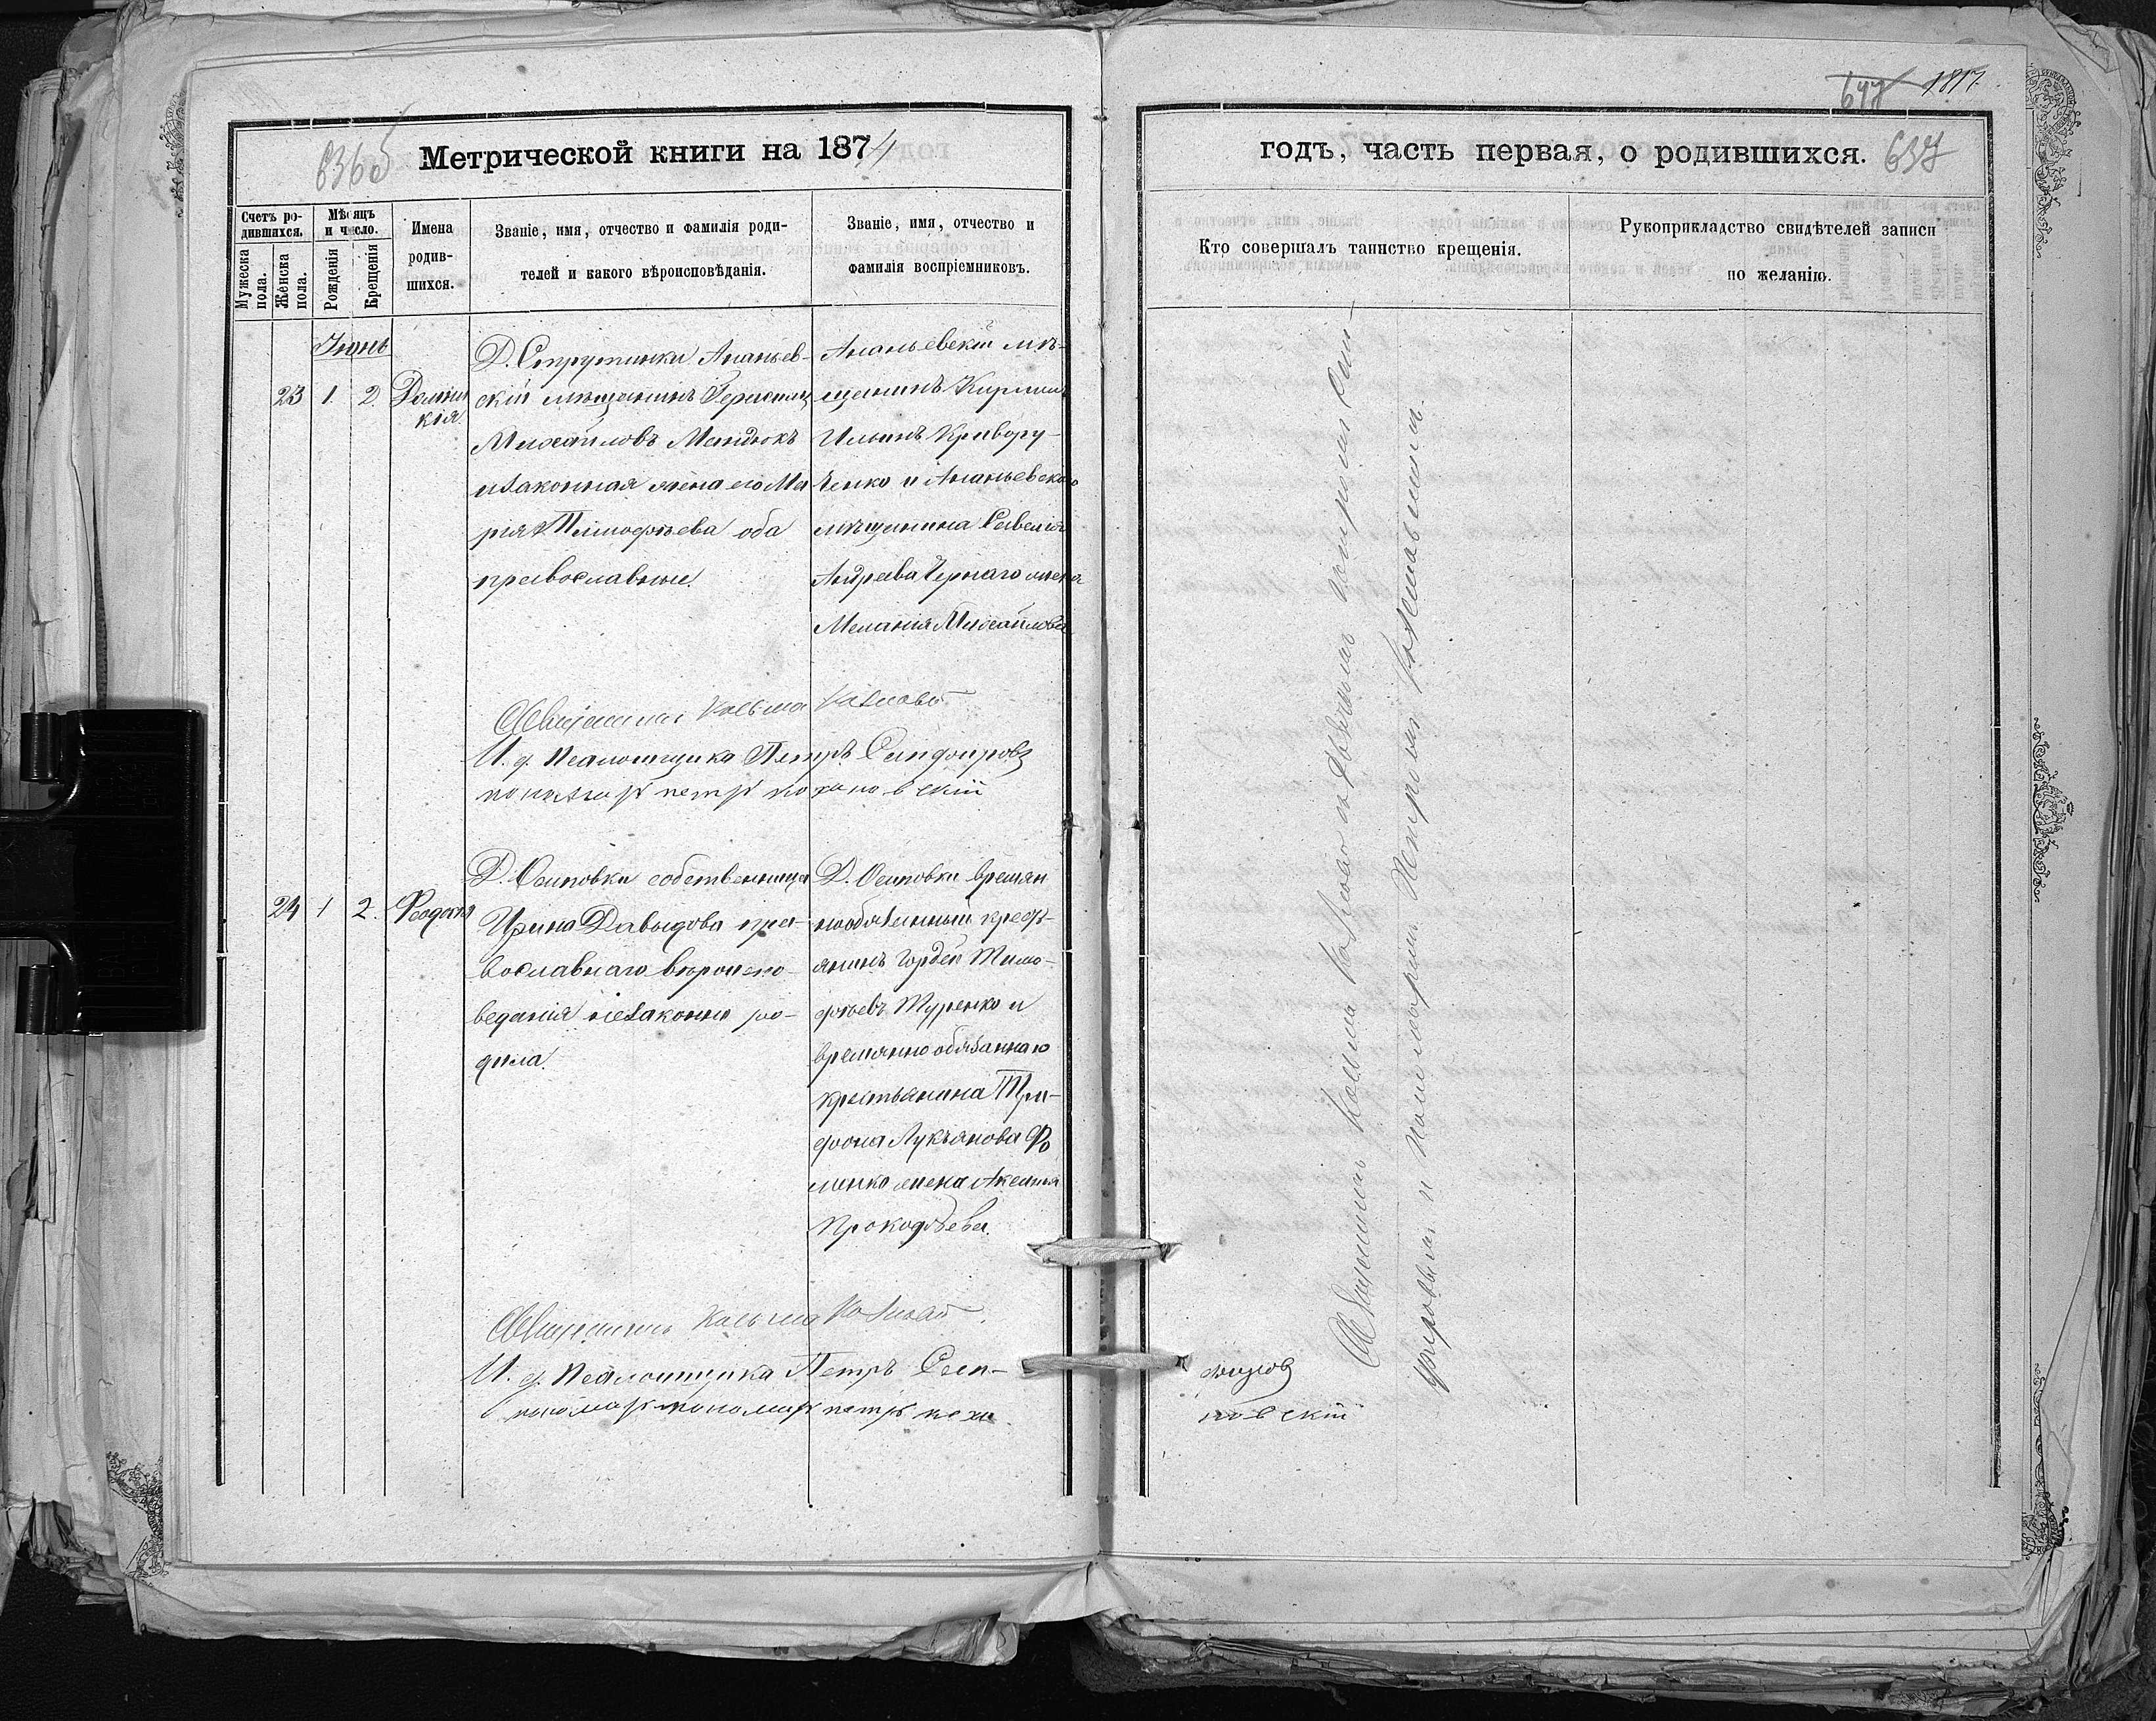 636 об
Метрической книги на 1874
Счетъ ро-
дившихся.
Мѣсяцъ
и число.
Мужеска
пола.
Женска
пола.
Рожденія
Крещенія
Имена
родив-
шихся.
Званіе, имя, отчество и фамилія роди-
телей и какого вѣроисповѣданія.
Званіе, имя, отчество и
фамилія воспріемниковъ.
Іюнь
23 1. 2. Домни
кія.
Д. Струтинки Ананьев-
скій мѣщанинъ
Михайловъ Мандюкъ
и законная жена его Ма
рія Тимофѣева оба
православные.
Ананьевскій мѣ-
щанинъ Кирилъ
Ильинъ Кривору-
ченко и Ананьевскаго
мѣщанина Савелія
Андреева Чернаго жена
Меланія Михайлова
Священникъ Косьма Козловъ
И. д. Псаломщика Петръ
пономарь петръ кохановскій
24 1 2. Феодосія
Д. Осиповки собственница
Ирина Давыдова пра-
вославнаго вѣроиспо-
веданія незаконно ро-
дила.
Д. Осиповки времян
нообязанный кресть-
янинъ Гордѣй Тимо-
фѣевъ Туренко и
времянно обязаннаго
крестьянина Три-
фона Лукъянова Фо
менко жена Аксинья
Прокофѣева.
Священникъ Косьма Козловъ.
И. д. Псаломщика Петръ
пономарь петръ коха
647 1817.
годъ, часть первая, о родившихся. 637
Кто совершалъ таинство крещенія.
Рукоприкладство свидѣтелей записи
по желанію.
Священникъ Косьма Козловъ съ
и пономаремъ Петромъ Кохановскимъ.
новскій